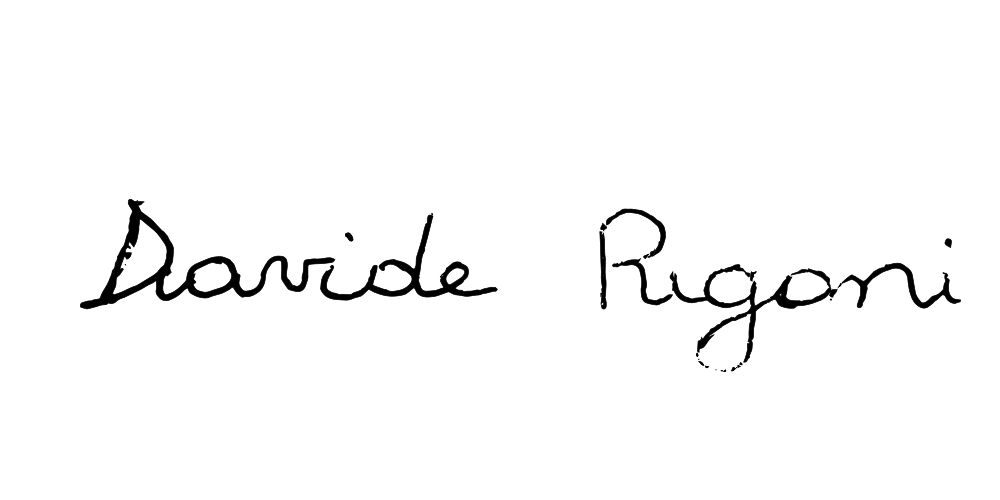 Davide Rigoni